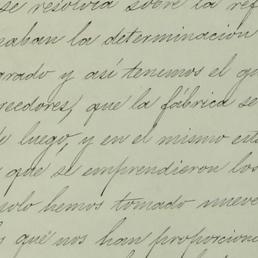 se resolvía sobre la ref
naban la determinación
grado y así tenemos el qu
eedores, que la fábrica se
e luego, y en el mismo est
que se emprendieron los
solo hemos tomado nueve
s qué nos han proporcion